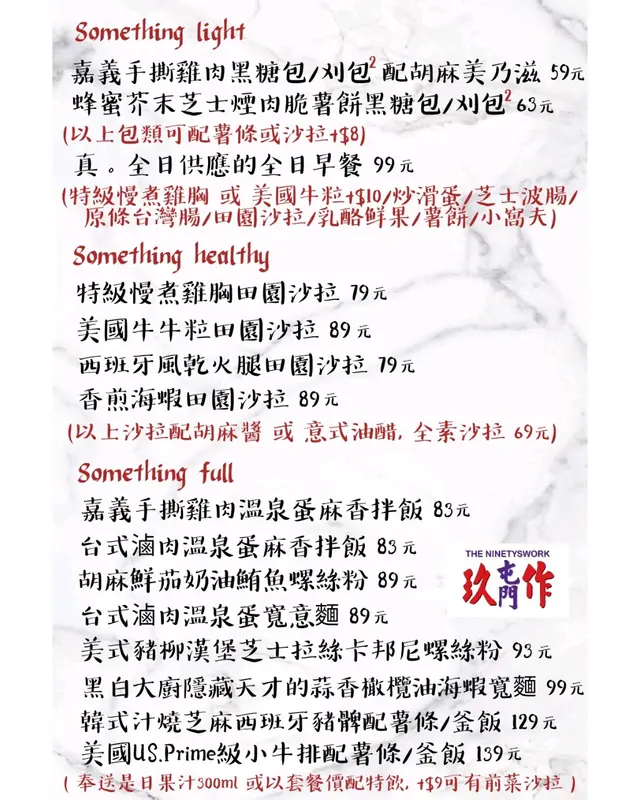 Something light
嘉義手撕雞肉黑糖包/刈包2 配胡麻美乃滋 59元
蜂蜜芥末芝士煙肉脆薯餅黑糖包/刈包2 63元
(以上包類可配薯條或沙拉+$8)
真。全日供應的全日早餐 99元
(特級慢煮雞胸 或 美國牛粒+$10/炒滑蛋/芝士波腸/
原條台灣腸/田園沙拉/乳酪鮮果/薯餅/小窩夫)
Something healthy
特級慢煮雞胸田園沙拉 79元
美國牛牛粒田園沙拉 89元
西班牙風乾火腿田園沙拉 79元
香煎海蝦田園沙拉 89元
(以上沙拉配胡麻醬 或 意式油醋, 全素沙拉 69元)
Something full
嘉義手撕雞肉溫泉蛋麻香拌飯 83元
台式滷肉溫泉蛋麻香拌飯 83元
胡麻鮮茄奶油鮪魚螺絲粉 89元
台式滷肉溫泉蛋寬意麵 89元
THE NINETYSWORK
玖屯門作
美式豬柳漢堡芝士拉絲卡邦尼螺絲粉 93元
黑白大廚隱藏天才的蒜香橄欖油海蝦寬麵 99元
韓式汁燒芝麻西班牙豬髀配薯條/釜飯 129元
美國US.Prime級小牛排配薯條/釜飯 139元
(奉送是日果汁300ml 或以套餐價配特飲, +$9可有前菜沙拉)